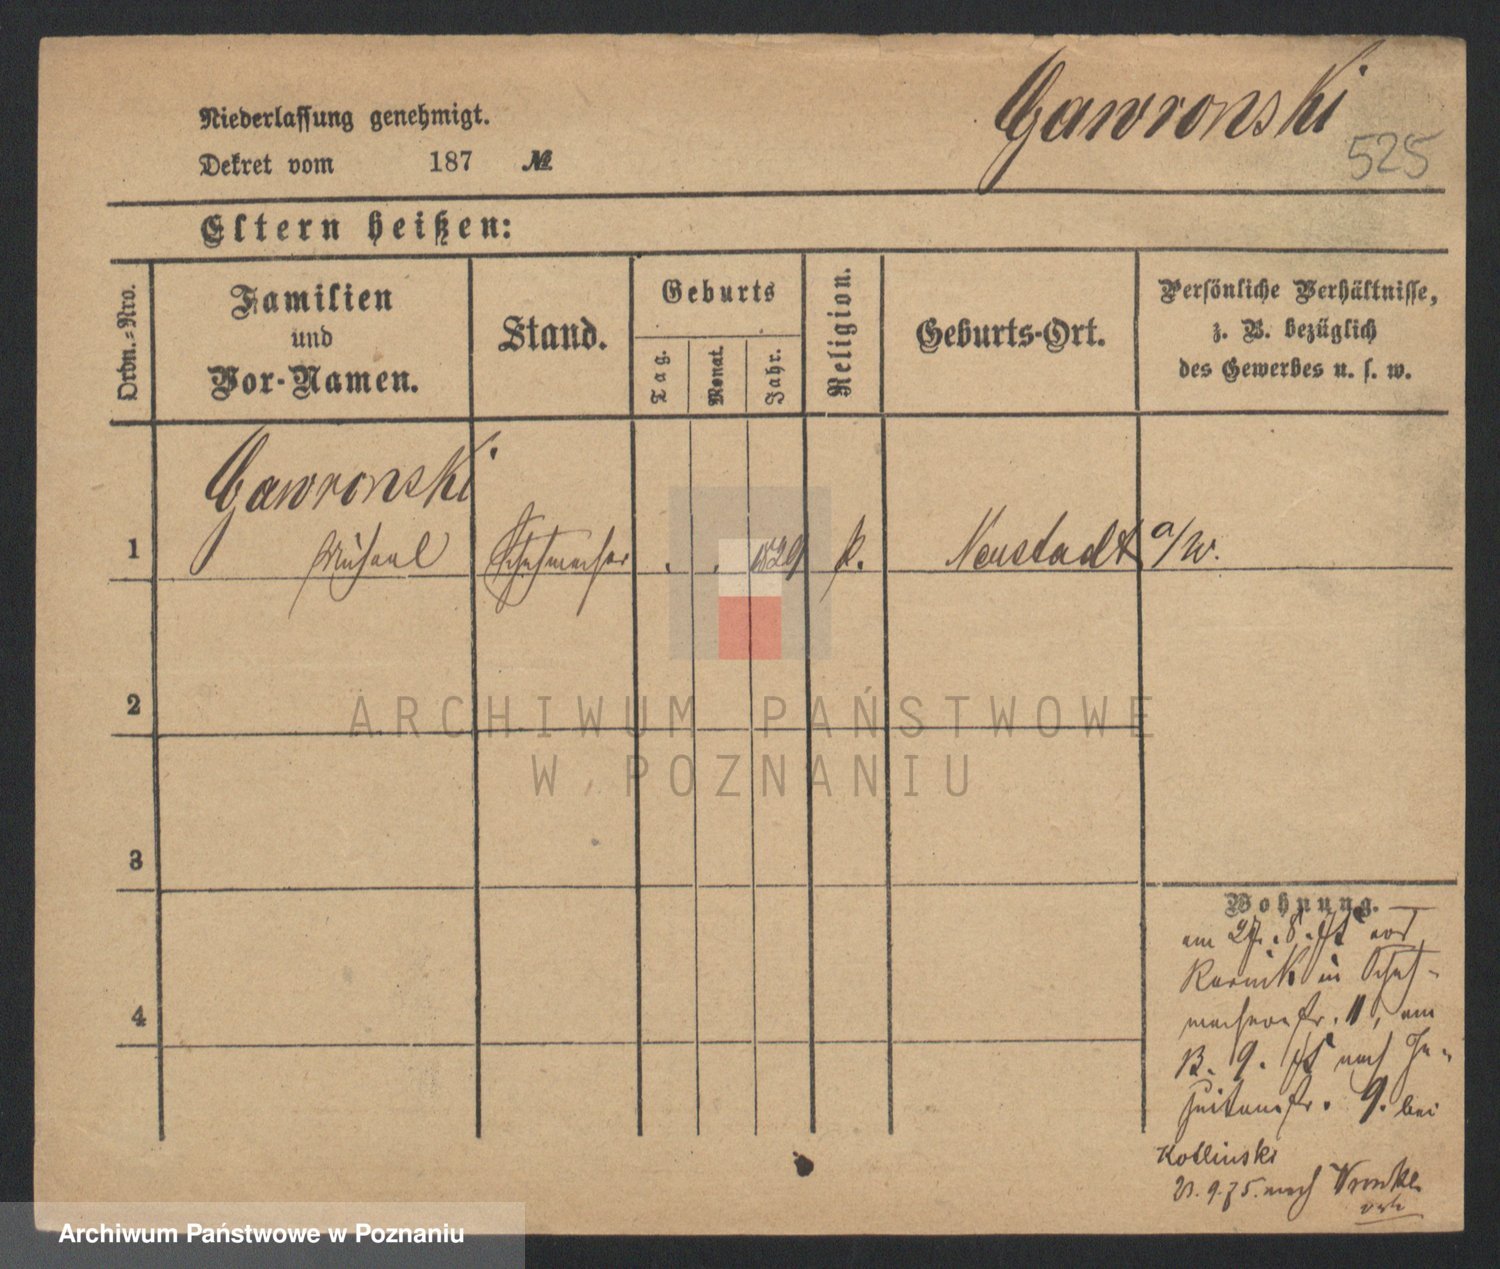 Gawronski
525
Niederlassung genehmigt.
Dekret vom 187 №
Eltern heißen:
Ordn.-Nro.
Familien
und
Vor-Namen.
Stand.
Geburts
Tag.
Monat.
Jahr.
Religion.
Geburts-Ort.
Persönliche Verhältnisse,
z. B. bezüglich
des Gewerbes u. s. w.
1
Gawronski
Michael
Schuhmacher
. . 1829
k.
Neustadt a/W.
2
3
4
Wohnung.
am 27. 8. 75 aus
Kurnik in Schuh-
macherstr. 11, am
13. 9. 75 nach Je-
suitenstr. 9. bei
Kotlinski
23. 9. 75. nach Wronke
ARCHIWUM PAŃSTWOWE
W POZNANIU
Archiwum Państwowe w Poznaniu